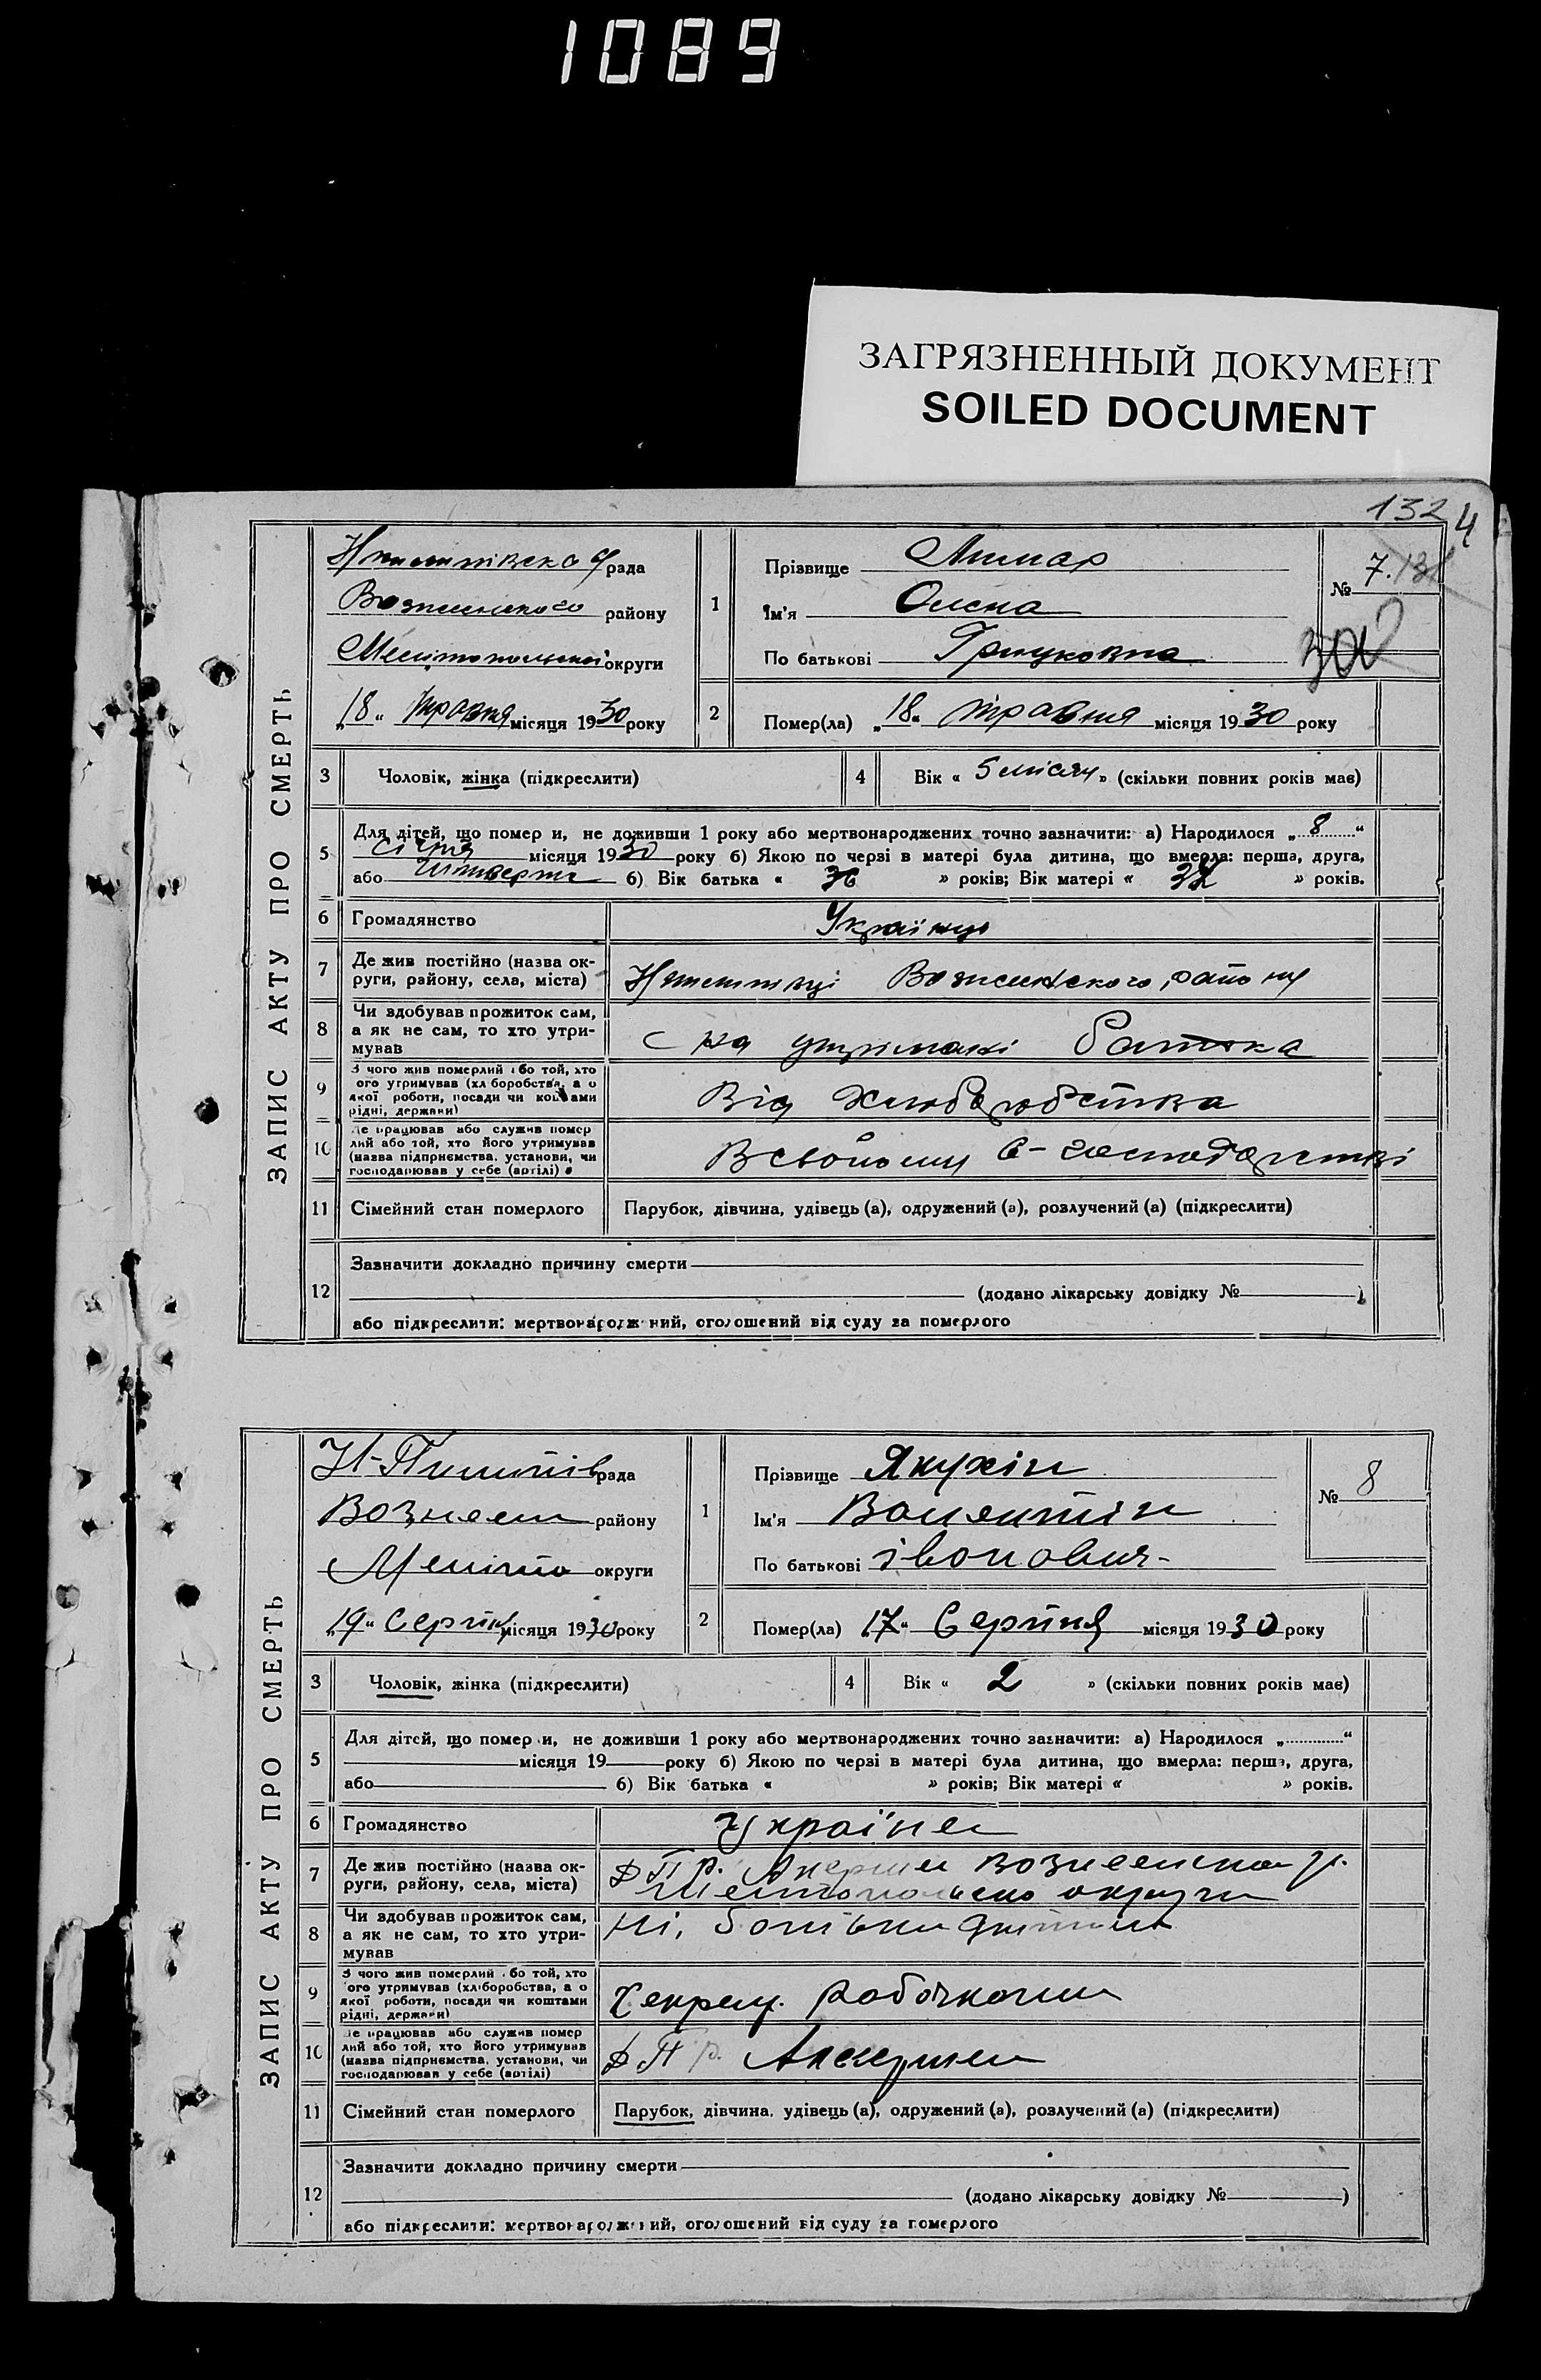 1089
ЗАГРЯЗНЕННЫЙ ДОКУМЕНТ
SOILED DOCUMENT
132
4
ЗАПИС АКТУ ПРО СМЕРТЬ
рада
району
Мелітопольської округи
„18“ травня місяця 1930 року
1
Прізвище Лимар
Ім'я Олена
По батькові Грицковна
№ 7.
2
Помер(ла) „18“ травня місяця 1930 року
3
Чоловік, жінка (підкреслити)
4
Вік « 5 місяц » (скільки повних років має)
5
Для дітей, що помер и, не доживши 1 року або мертвонароджених точно зазначити: а) Народилося „8“
січня місяця 1930 року б) Якою по черзі в матері була дитина, що вмерла: перша, друга,
або б) Вік батька « » років; Вік матері « » років.
6
Громадянство
Українці
7
Де жив постійно (назва ок-
руги, району, села, міста)
району
8
Чи здобував прожиток сам,
а як не сам, то хто утри-
мував
на утримані батька
9
З чого жив померлий або той, хто
ого утримував (хліборобства, а о
якої роботи, посади чи коштами
рідні, держави)
Від хлиборобства
10
Де працював або служив помер
лий або той, хто його утримував
(назва підприємства, установи, чи
господарював у себе (артілі)
В свойому с-господарстві
11
Сімейний стан померлого
Парубок, дівчина, удівець (а), одружений (а), розлучений (а) (підкреслити)
12
Зазначити докладно причину смерти
(додано лікарську довідку № )
або підкреслити: мертвонароджений, оголошений від суду за померлого
ЗАПИС АКТУ ПРО СМЕРТЬ
рада
Вознесен району
Меліто округи
„19“ Серпня місяця 1930 року
1
Прізвище Якухін
Ім'я Валентин
По батькові івонович
№ 8
2
Помер(ла) „17“ Серпня місяця 1930 року
3
Чоловік, жінка (підкреслити)
4
Вік « 2 » (скільки повних років має)
5
Для дітей, що помер и, не доживши 1 року або мертвонароджених точно зазначити: а) Народилося „ “
місяця 19 року б) Якою по черзі в матері була дитина, що вмерла: перша, друга,
або б) Вік батька « » років; Вік матері « » років.
6
Громадянство
Україне
7
Де жив постійно (назва ок-
руги, району, села, міста)
округи
8
Чи здобував прожиток сам,
а як не сам, то хто утри-
мував
Ні,
9
З чого жив померлий або той, хто
ого утримував (хліборобства, а о
якої роботи, посади чи коштами
рідні, держави)
Секрет. Рабочкома
10
Де працював або служив помер
лий або той, хто його утримував
(назва підприємства, установи, чи
господарював у себе (артілі)
11
Сімейний стан померлого
Парубок, дівчина, удівець (а), одружений (а), розлучений (а) (підкреслити)
12
Зазначити докладно причину смерти
(додано лікарську довідку № )
або підкреслити: мертвонароджений, оголошений від суду за померлого